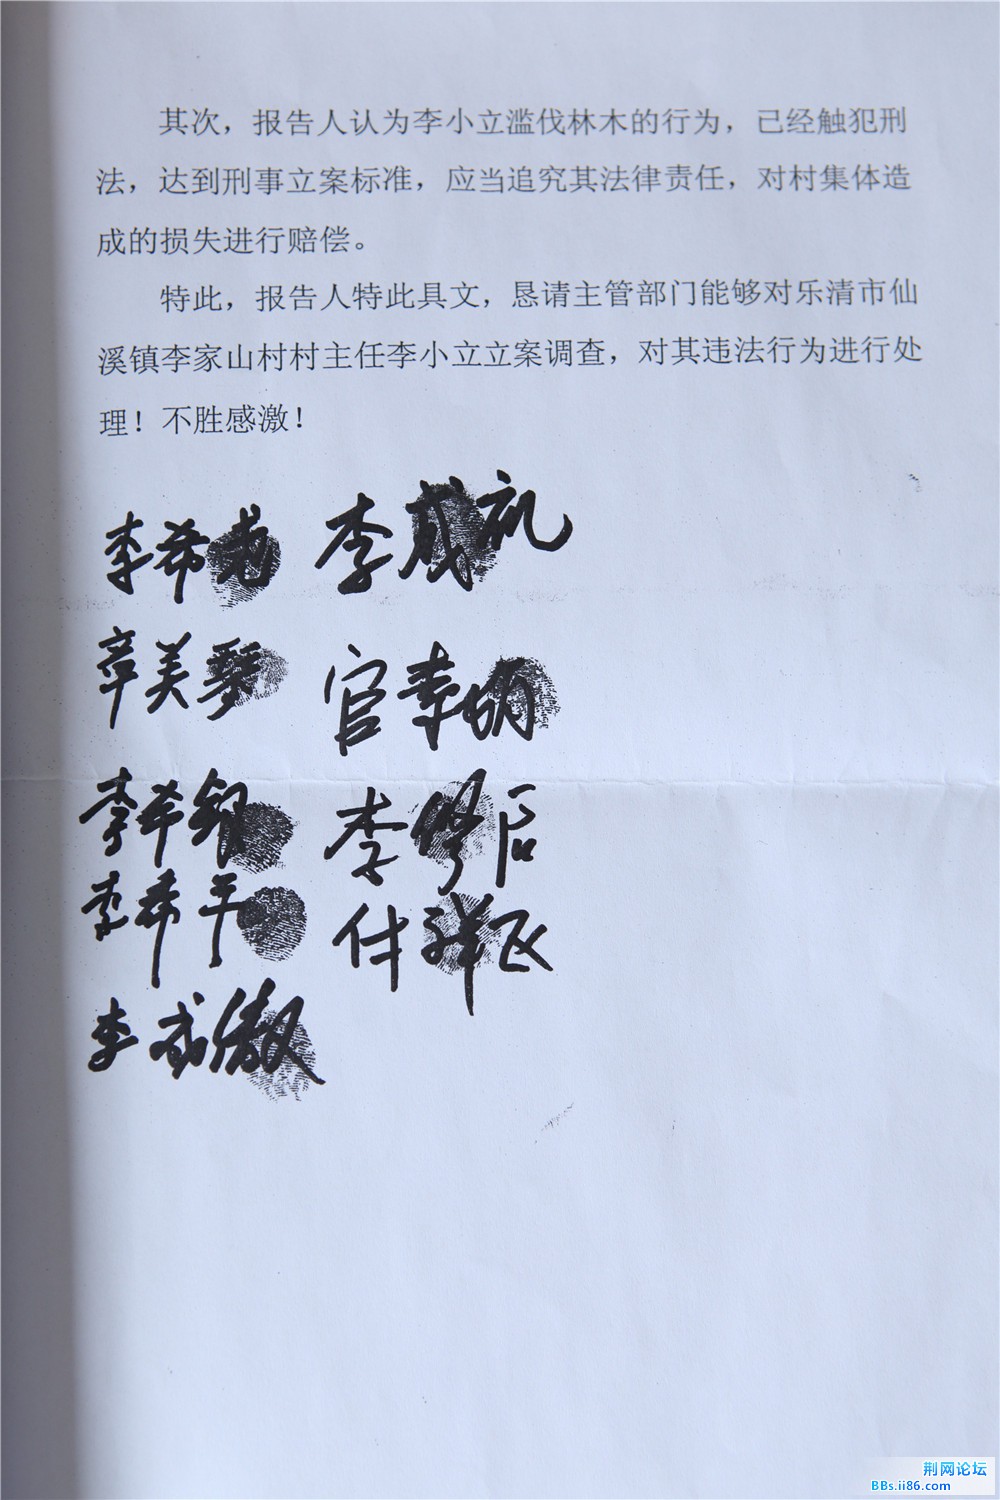 其次，报告人认为李小立滥伐林木的行为，已经触犯刑
法，达到刑事立案标准，应当追究其法律责任，对村集体造
成的损失进行赔偿。
特此，报告人特此具文，恳请主管部门能够对乐清市仙
溪镇李家山村村主任李小立立案调查，对其违法行为进行处
理！不胜感激！
李希
李成礼
章美琴
官幸
李希银
李 后
李希平
付祥飞
李成傲
荆网论坛
BBs.ii86.com